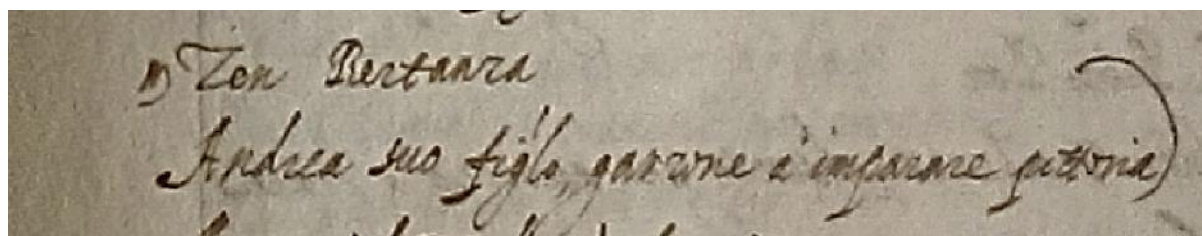 Zen Bertanza
Andrea suo figlo, garzone à imparare pittoria)